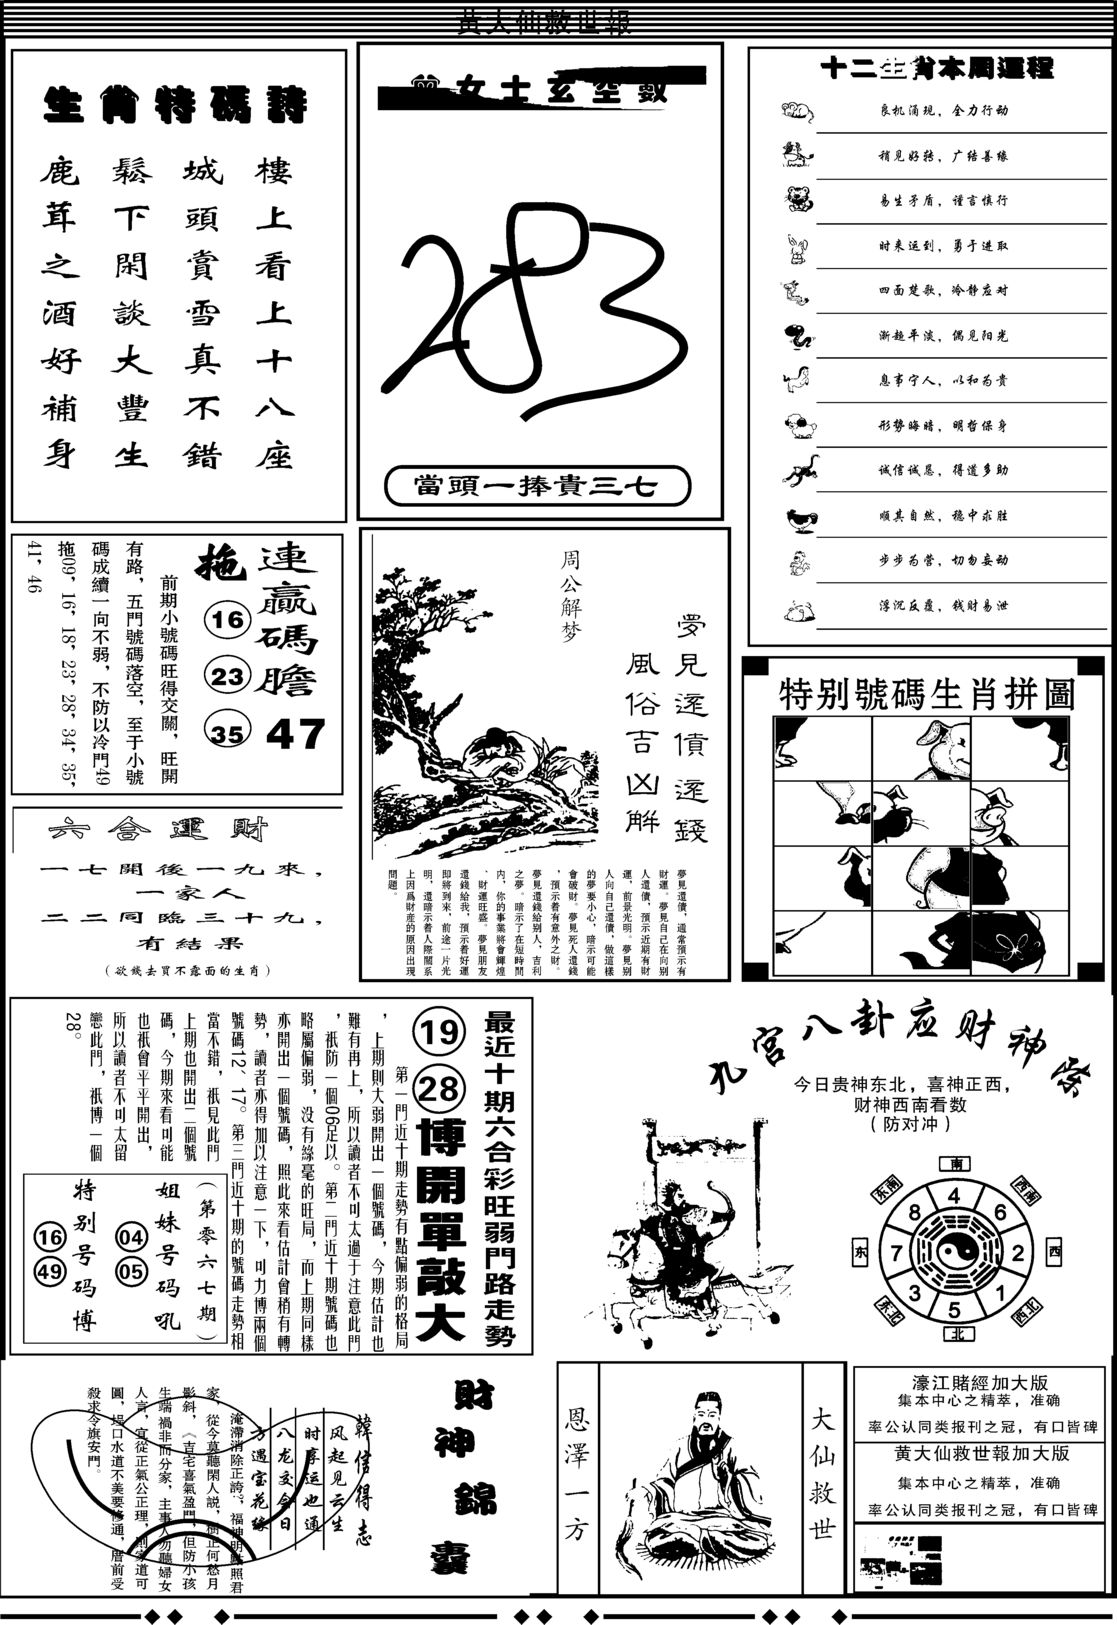 黃大仙救世報
生肖特碼詩
樓上看上十八座
城頭賞雪真不錯
鬆下閑談大豐生
鹿茸之酒好補身
曾女士玄空數
283
當頭一捧貴三七
十二生肖本周運程
良机涌现，全力行动
稍见好转，广结善缘
易生矛盾，谨言慎行
时来运到，勇于进取
四面楚歌，冷静应对
渐趋平淡，偶见阳光
息事宁人，以和为贵
形势晦暗，明哲保身
诚信诚恳，得道多助
顺其自然，稳中求胜
步步为营，切勿妄动
浮沉反覆，钱财易泄
連贏碼膽 47
拖 16 23 35
前期小號碼旺得交關，旺開
有路，五門號碼落空，至于小號
碼成續一向不弱，不防以冷門49
拖09，16，18，23，28，34，35，
41，46
周公解梦
夢見還債還錢
風俗吉凶解
夢見還債，通常預示有
財運。夢見自己在向別
人還債，預示近期有財
運，前景光明。夢見別
人向自己還債，做這樣
的夢要小心，暗示可能
會破財。夢見死人還錢
，預示着有意外之財。
夢見還錢給別人，吉利
之夢。暗示了在短時間
内，你的事業將會輝煌
、財運旺盛。夢見朋友
還錢給我，預示着好運
即將到來，前途一片光
明，還暗示着人際關系
上因爲財産的原因出現
問題。
特别號碼生肖拼圖
六合運財
一七開後一九來，
一家人
二二同臨三十九，
有結果
（欲錢去買不露面的生肖）
最近十期六合彩旺弱門路走勢
19 28 博開單敲大
第一門近十期走勢有點偏弱的格局
，上期則大弱開出一個號碼，今期估計也
難有再上，所以讀者不可太過于注意此門
，祇防一個06足以。第二門近十期號碼也
略屬偏弱，没有絲毫的旺局，而上期同樣
亦開出一個號碼，照此來看估計會稍有轉
勢，讀者亦得加以注意一下，可力博兩個
號碼12、17。第三門近十期的號碼走勢相
當不錯，祇見此門
上期也開出二個號
碼，今期來看可能
也祇會平平開出，
所以讀者不可太留
戀此門，祇博一個
28。
（第零六七期）
姐妹号码吼
04 05
特别号码博
16 49
九宫八卦应财神除
今日贵神东北，喜神正西，
财神西南看数
（防对冲）
南
东南 西南
4
8 6
东 7 2 西
3 1
5
东北 西北
北
財神錦囊
韓信得志
风起见云生
时厚运也通
八龙交会日
方遇宝花缘
淹滯消除正誇，福神明點照君
家，從今莫聽閑人説，樹正何愁月
影斜，《吉宅喜氣盈門，但防小孩
生端禍非而分家，主事人勿聽婦女
人言，宜從正氣公正理，則家道可
圓，塌口水道不美要修通，厝前受
殺求令旗安門。
大仙救世
恩澤一方
濠江賭經加大版
集本中心之精萃，准确
率公认同类报刊之冠，有口皆碑
黄大仙救世報加大版
集本中心之精萃，准确
率公认同类报刊之冠，有口皆碑